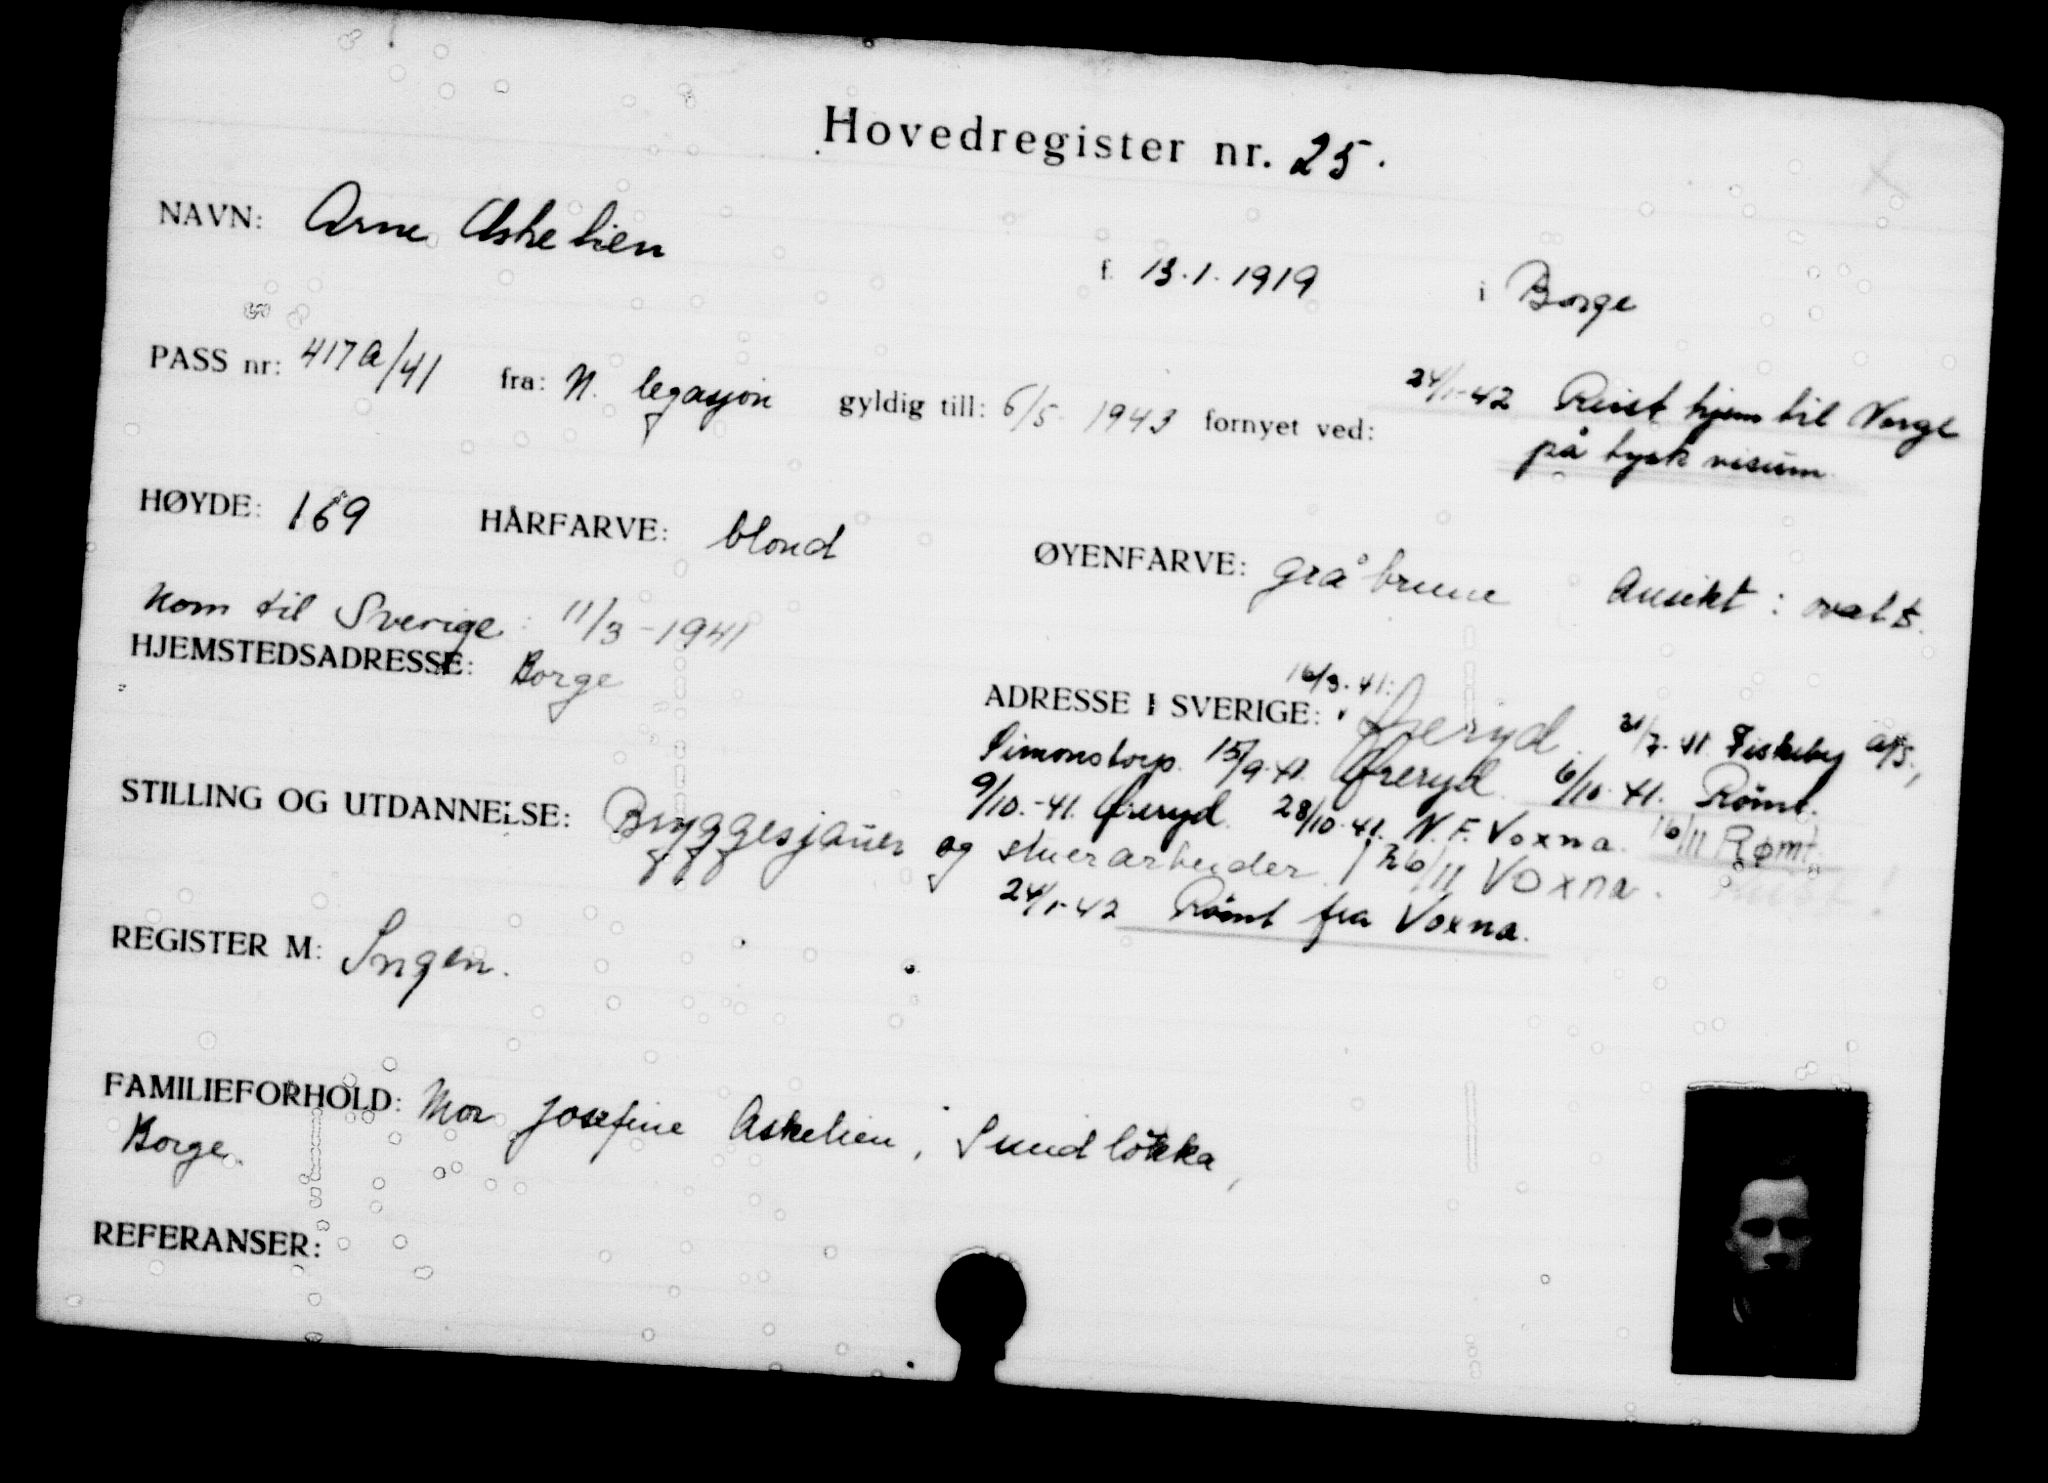 Hovedregister nr. 25.
NAVN: Arne Askelien f. 13.1.1919 i Borge
PASS nr: 417a/41 fra: N. legasjon gyldig till: 6/5 1943 fornyet ved: 24/1-42 Reist hjem til Norge
på tysk visum.
HØYDE: 169 HÅRFARVE: blond ØYENFARVE: grå brune Ansikt: ovalt.
Kom til Sverige: 11/3-1941
HJEMSTEDSADRESSE: Borge
ADRESSE I SVERIGE: 16/3.41: Øreryd. 21/7.41 Fiskeby A/S,
Simonstorp. 15/9.41. Øreryd. 6/10.41. Rømt.
9/10.-41. Øreryd. 28/10.41. N.F. Voxna. 16/11 Rømt.
26/11 Voxna.
24/1-42 Rømt fra Voxna.
STILLING OG UTDANNELSE: Bryggesjauer og stuerarbeider.
REGISTER M: Ingen.
FAMILIEFORHOLD: Mor Josefine Askelien, Sundløkka,
Borge.
REFERANSER: